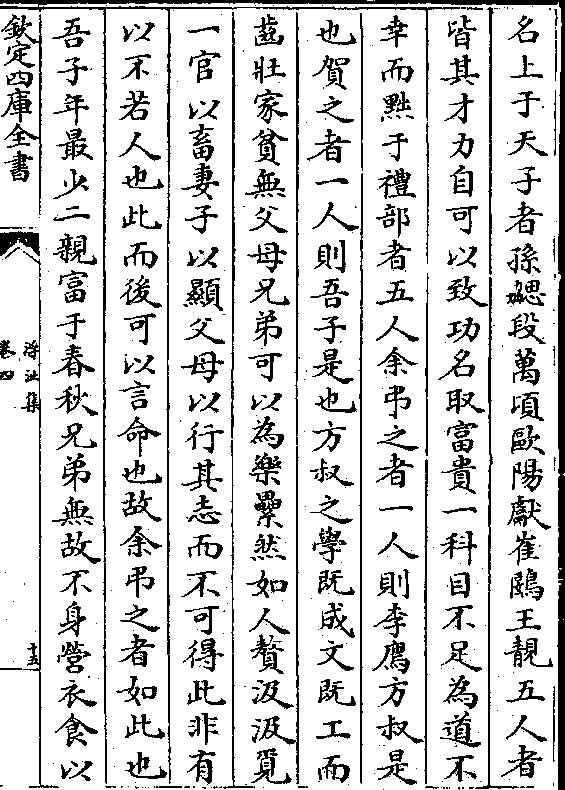 名上于天子者孫勰段萬頃歐陽獻崔鷗王靚五人者
皆其才力自可以致功名取富貴一科目不足為道不
幸而黜于禮部者五人余弔之者一人則李廌方叔是
也賀之者一人則吾子是也方叔之學既成文既工而
齒壯家貧無父母兄弟可以為樂纍然如人贅汲汲覓
一官以畜妻子以顯父母以行其志而不可得此非有
以不若人也此而後可以言命也故余弔之者如此也
吾子年最少二親富于春秋兄弟無故不身營衣食以
欽定四庫全書
浮沚集
卷四
十五